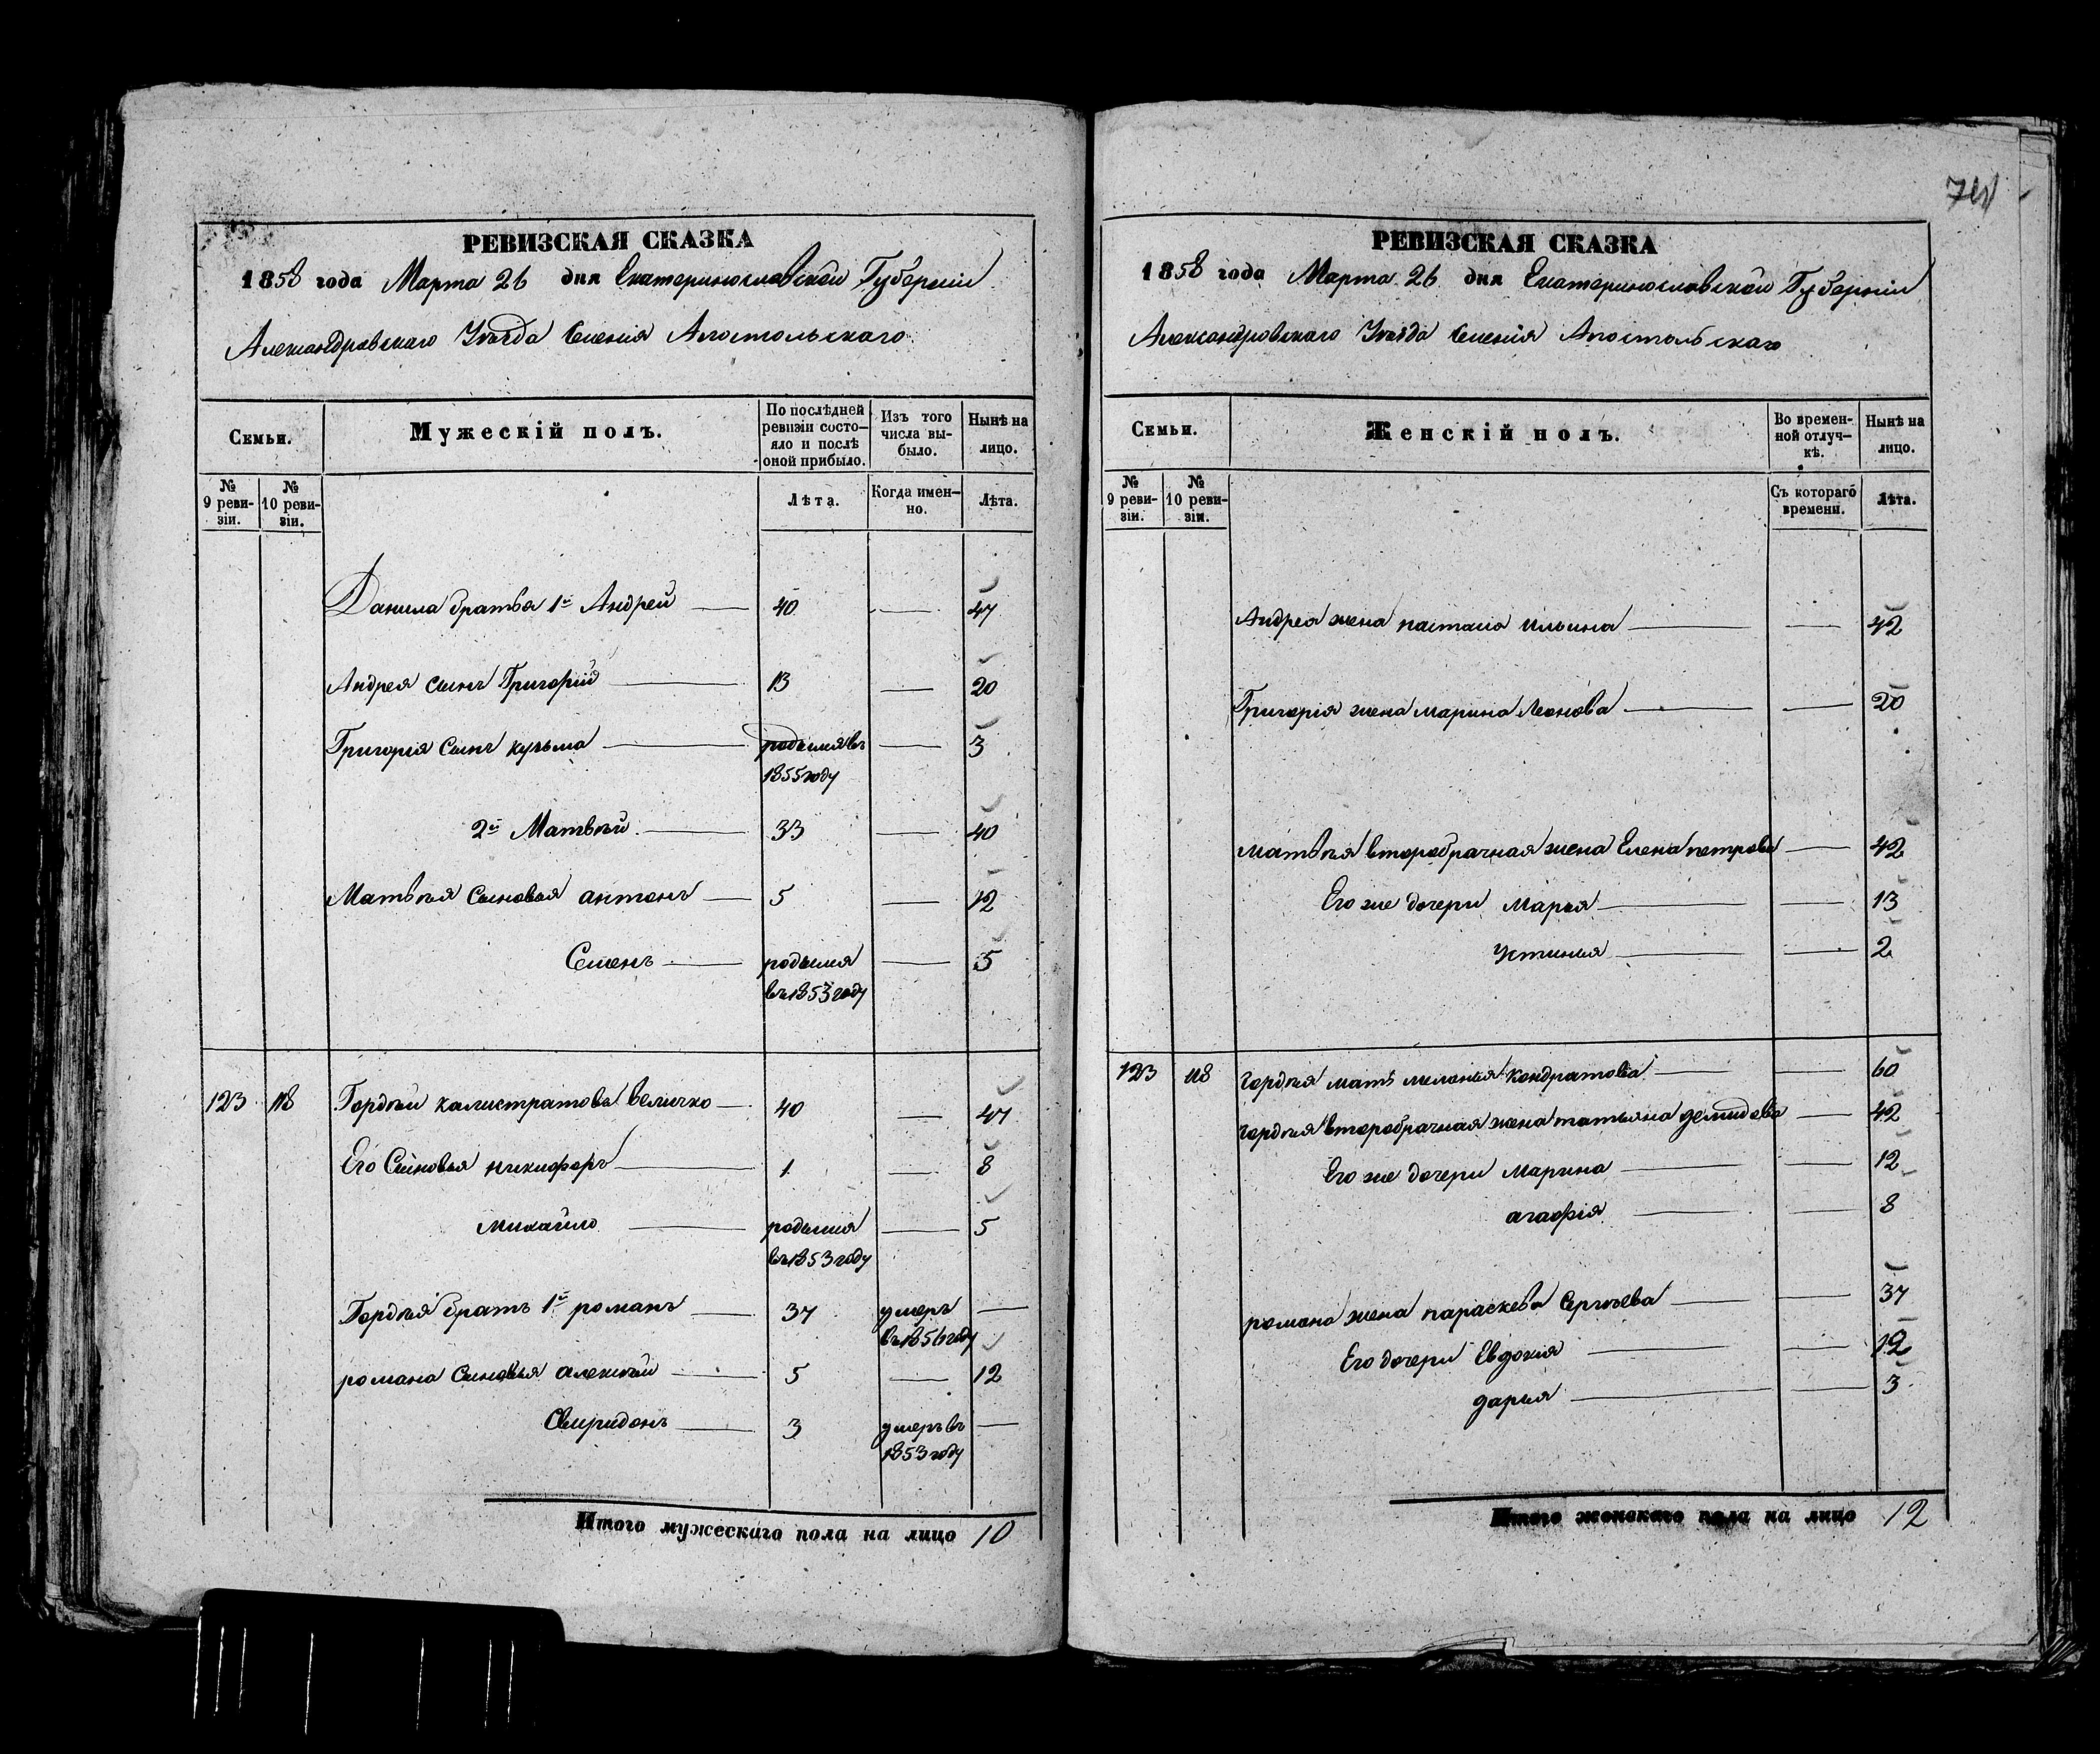 РЕВИЗСКАЯ СКАЗКА
1858 года Марта 26 дня Екатеринославской Губерніи
Александровского Уѣзда Селенія Апостольского
Семьи.
Мужескій полъ.
По послѣдней ревизіи состо-яло и послѣ оной прибыло.
Изъ того числа вы-было.
Нынѣ на лицо.
№ 9 реви-зіи.
№ 10 реви-зіи.
Лѣта.
Когда имен-но.
Лѣта.
Данила братья 1й Андрей 40 — 47
Андрея сынъ Григорій 13 — 20
Григорія сынъ кузьма родился въ — 3
1855 году
2й Матвѣй 33 — 40
Матвѣя сыновья антонъ 5 — 12
Семенъ родился — 5
въ 1853 году
123 118 Гордѣй калистратовъ Величко 40 — 47
Его Сыновья никифоръ 1 — 8
михайло родился — 5
въ 1853 году
Гордѣя братъ 1й романъ 37 умеръ —
въ 1856 году
романа Сыновья алексѣй 5 — 12
Свиридонъ 3 умеръ въ —
1853 году
Итого мужескаго пола на лицо 10
РЕВИЗСКАЯ СКАЗКА
1858 года Марта 26 дня Екатеринославской Губерніи
Александровского Уѣзда Селенія Апостольскаго
Семьи.
Женскій полъ.
Во времен-ной отлуч-кѣ.
Нынѣ на лицо.
№ 9 реви-зіи.
№ 10 реви-зіи.
Съ котораго времени.
Лѣта.
Андрея жена настасія ильина — 42
Григорія жена марина Леонова — 20
матвѣя второбрачная жена Елена петрова — 42
Его же дочери марья — 13
устинья — 2
123 118 гордѣя мать меланья кондратова — 60
гордѣя второбрачная жена татьяна демидова — 42
Его же дочери марина — 12
агафія — 8
романа жена параскева Сергѣева — 37
Его дочери Евдокия — 12
дарья — 3
Итого женскаго пола на лицо 12